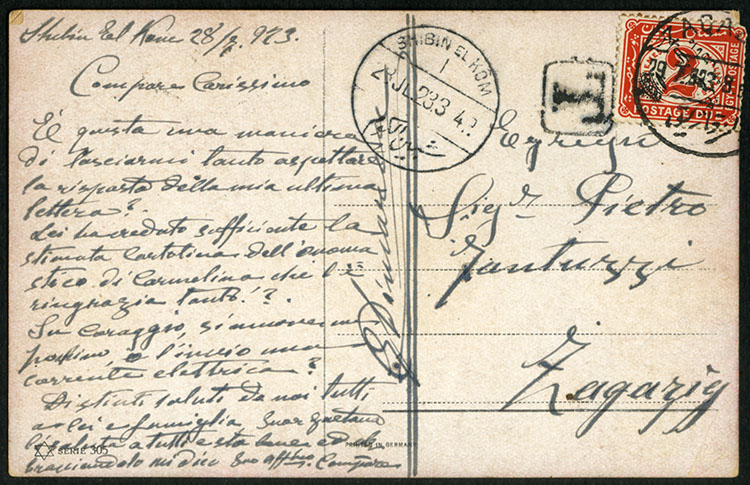 Shibin El Kom 28/7. 923
Compare Carissimo
É questa una maniera
di lasciarmi tanto aspettare
la risposta della mia ultima
lettera?
Lei ha creduto sufficiente la
stimata cartolina dell'onoma
stico di Carmelina che l
ringrazia tanto!?
Su coraggio, si muova un
pochino, o l'invio una
corrente elettrica?
Distinti saluti da noi tutti
a lei e famiglia. Suor Gaetana
la saluta a tutti e sta bene ed
mi dico Suo affmo. Compare
SERIE 305
PRINTED IN GERMANY
SHIBIN EL KOM
28.JL.23.3 4.P
T
POSTAGE DUE
2
Egregio
Sigr. Pietro
Zagazig